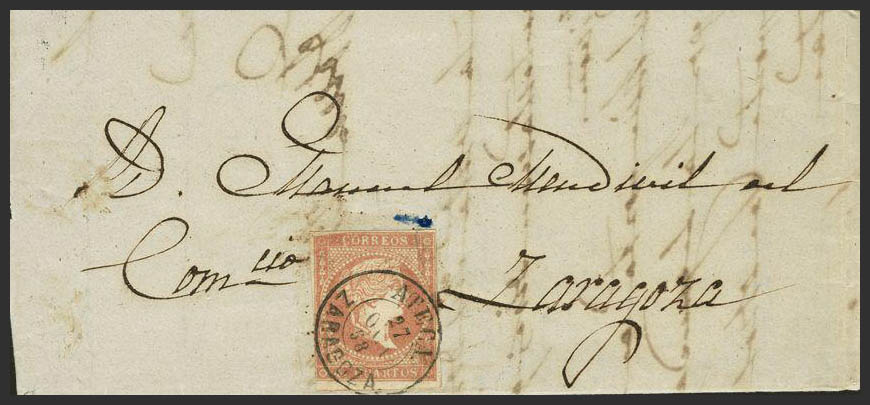 D. Manuel Mendivil del
Com.cio Zaragoza
CORREOS
CUARTOS
ATECA
27
58
ZARAGOZA.